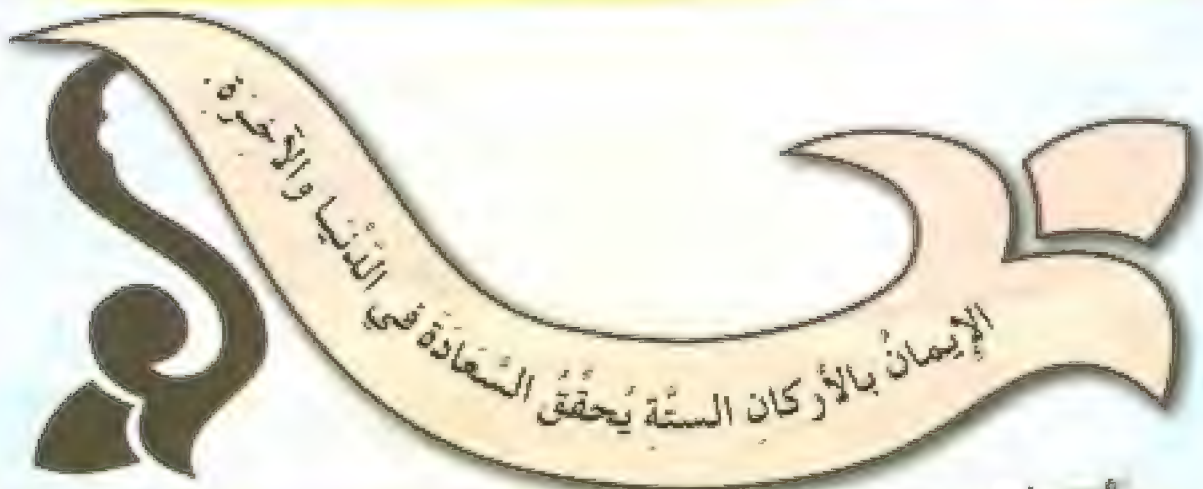 الإيمانُ بالأركانِ الستَّةِ يُحقِّقُ السَّعَادَةَ في الدُّنْيَا والآخِرَةِ.